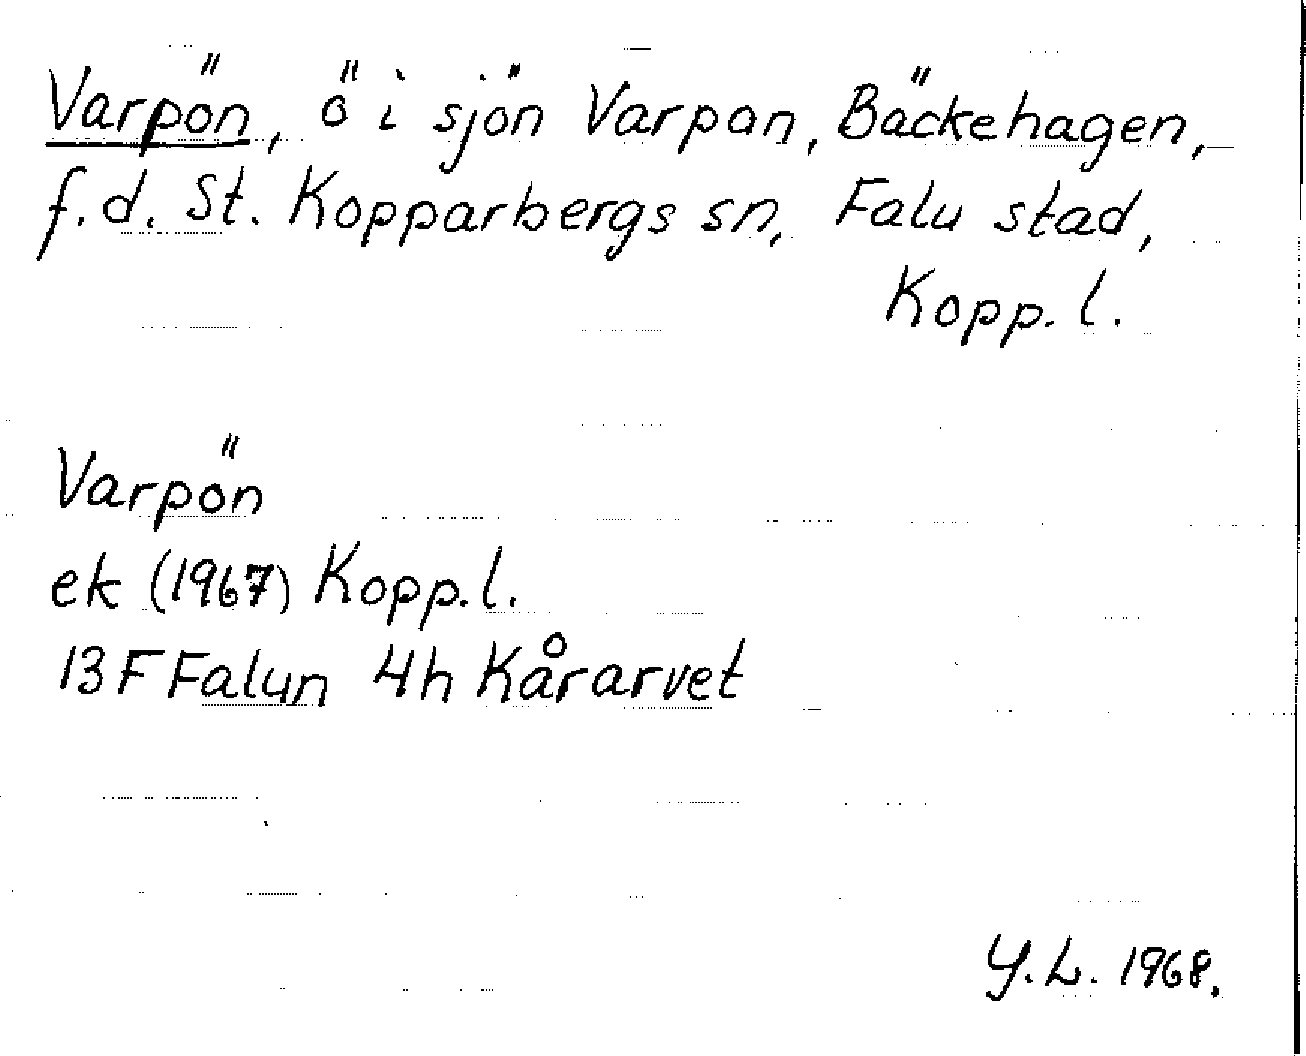 Varpön, ö i sjön Varpan, Bäckehagen,
f.d. St. Kopparbergs sn, Falu stad,
Kopp. l.
Varpön
ek (1967) Kopp. l.
13F Falun 4h Kårarvet
Y.L. 1968.